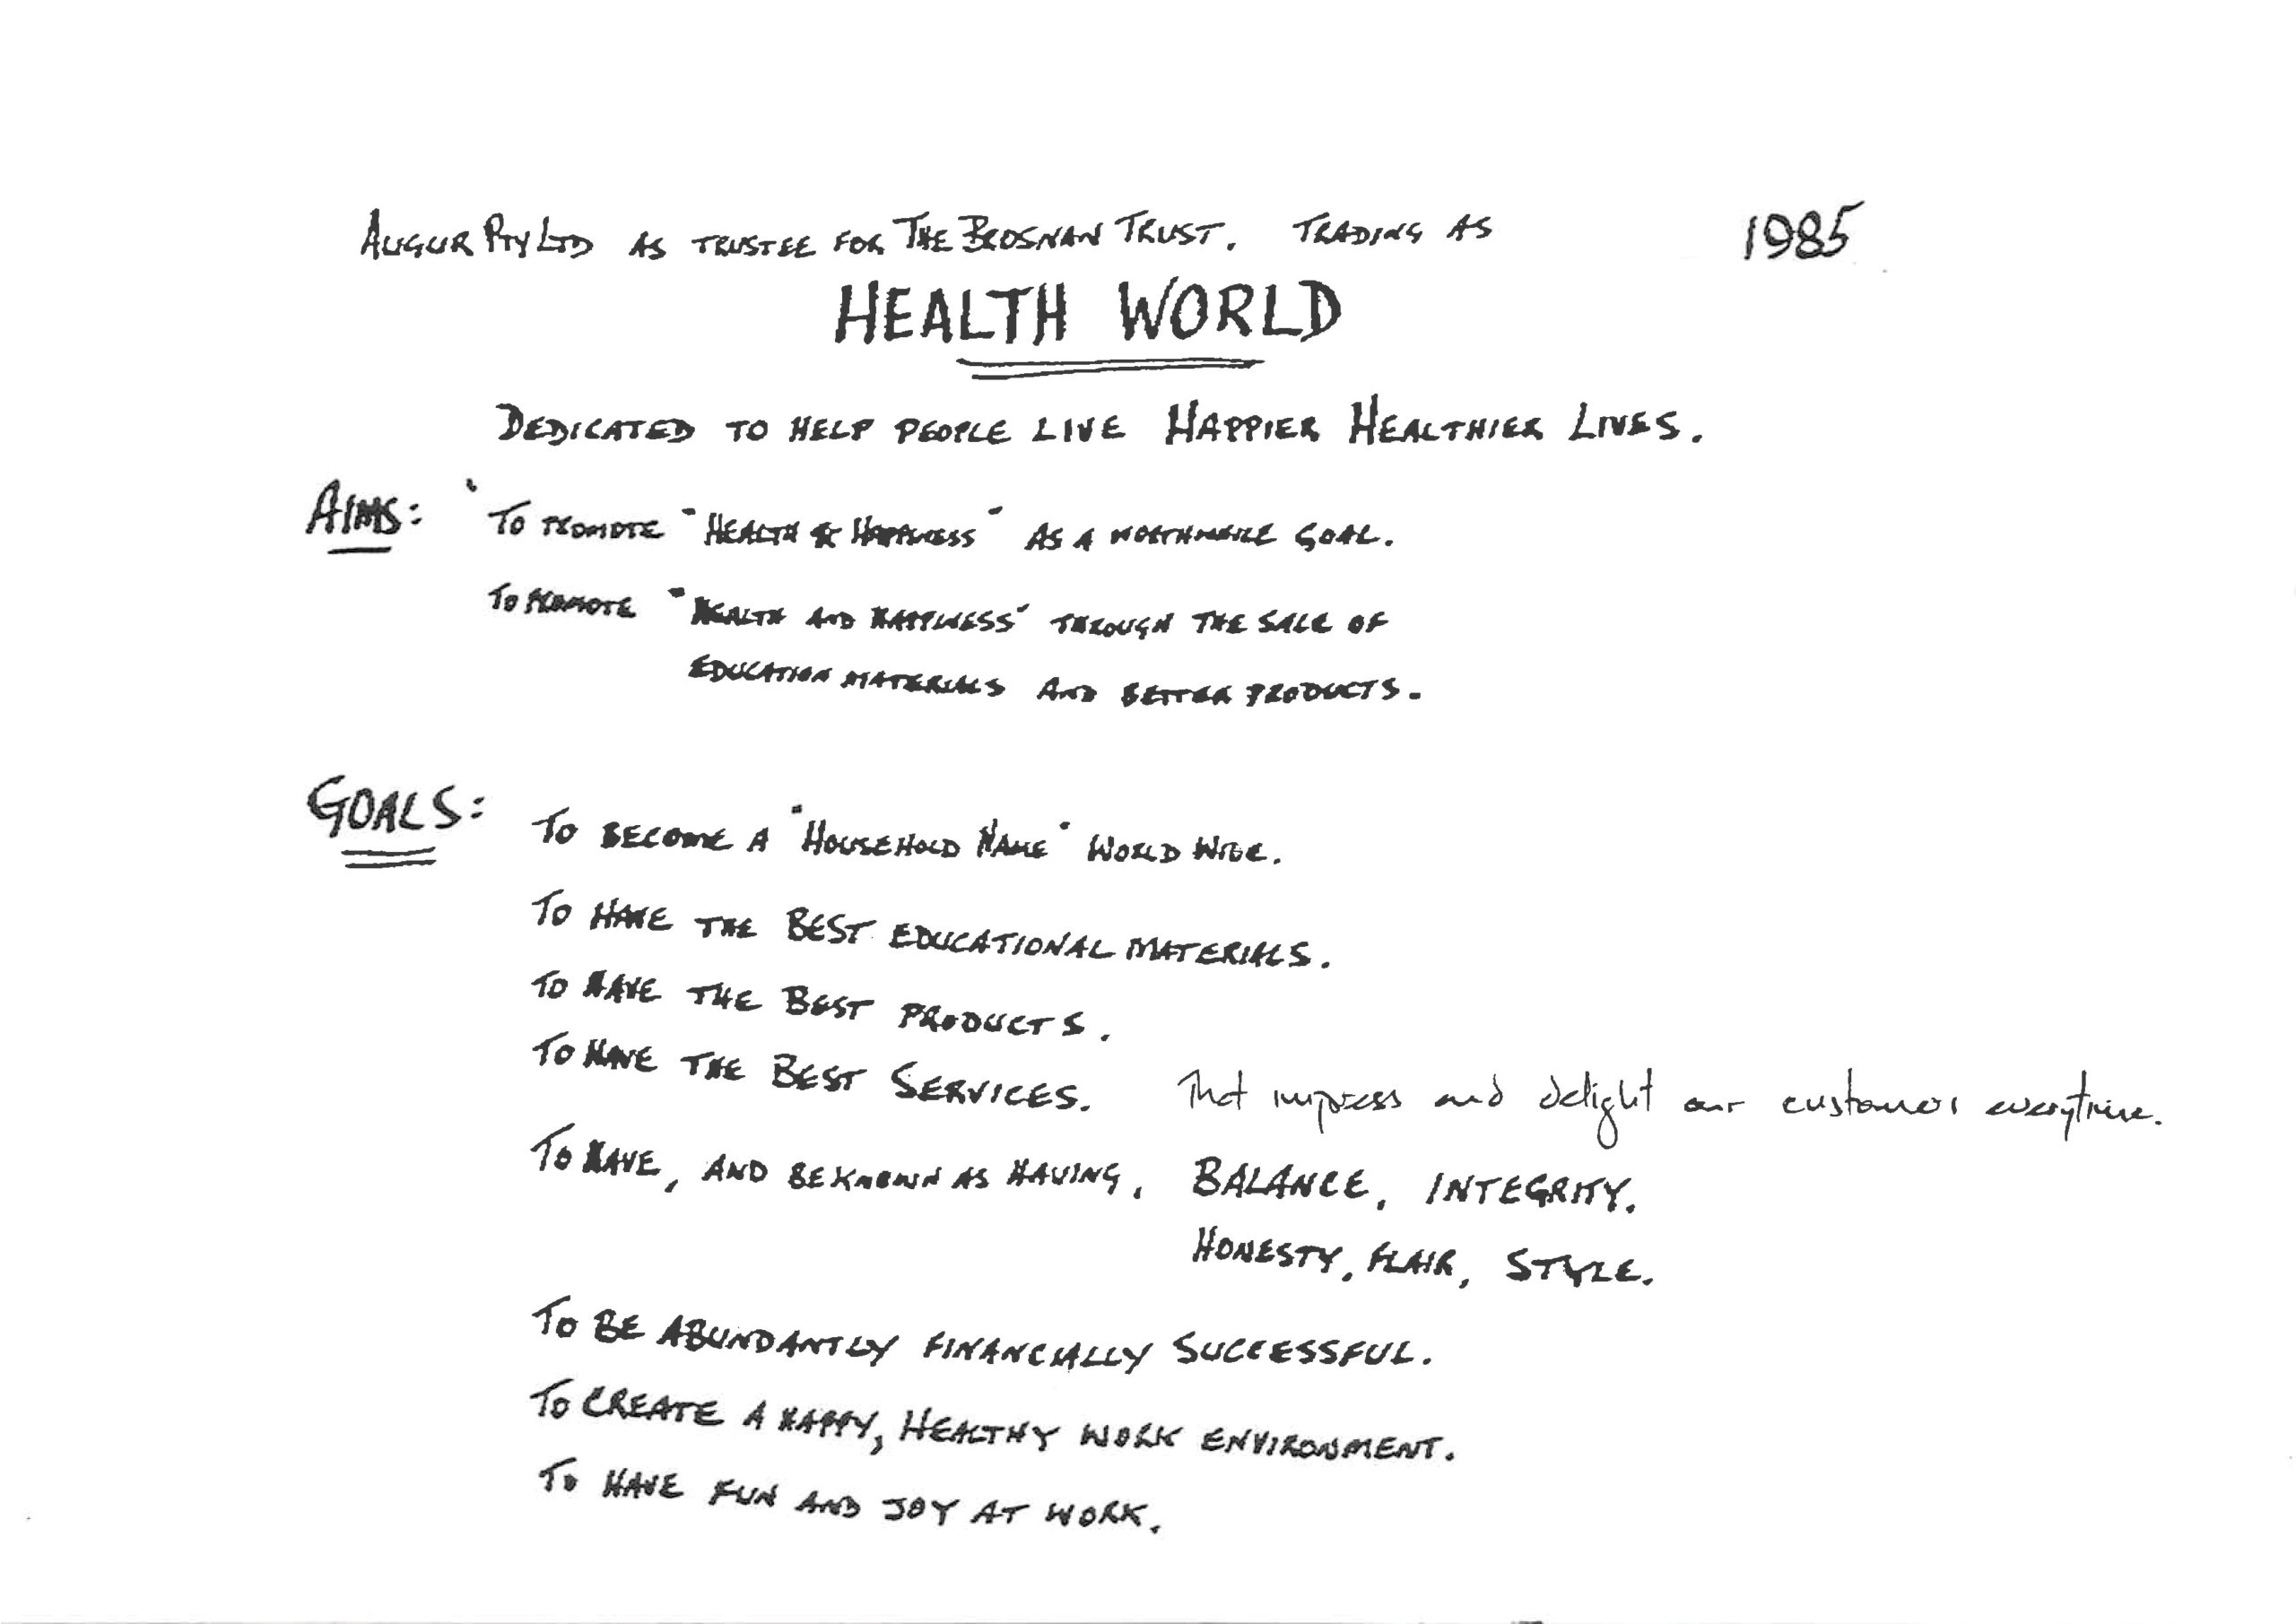 AUGUR PTY LTD AS TRUSTEE FOR THE BROSNAN TRUST. TRADING AS 1985
HEALTH WORLD
DEDICATED TO HELP PEOPLE LIVE HAPPIER HEALTHIER LIVES.
AIMS: TO PROMOTE "HEALTH & HAPPINESS" AS A WORTHWHILE GOAL.
TO PROMOTE "HEALTH AND HAPPINESS" THROUGH THE SALE OF
EDUCATION MATERIALS AND BETTER PRODUCTS.
GOALS: TO BECOME A "HOUSEHOLD NAME" WORLD WIDE.
TO HAVE THE BEST EDUCATIONAL MATERIALS.
TO HAVE THE BEST PRODUCTS.
TO HAVE THE BEST SERVICES. That impress and delight our customers everytime.
TO HAVE, AND BE KNOWN AS HAVING, BALANCE, INTEGRITY.
HONESTY, FLAIR, STYLE.
TO BE ABUNDANTLY FINANCIALLY SUCCESSFUL.
TO CREATE A HAPPY, HEALTHY WORK ENVIRONMENT.
TO HAVE FUN AND JOY AT WORK.